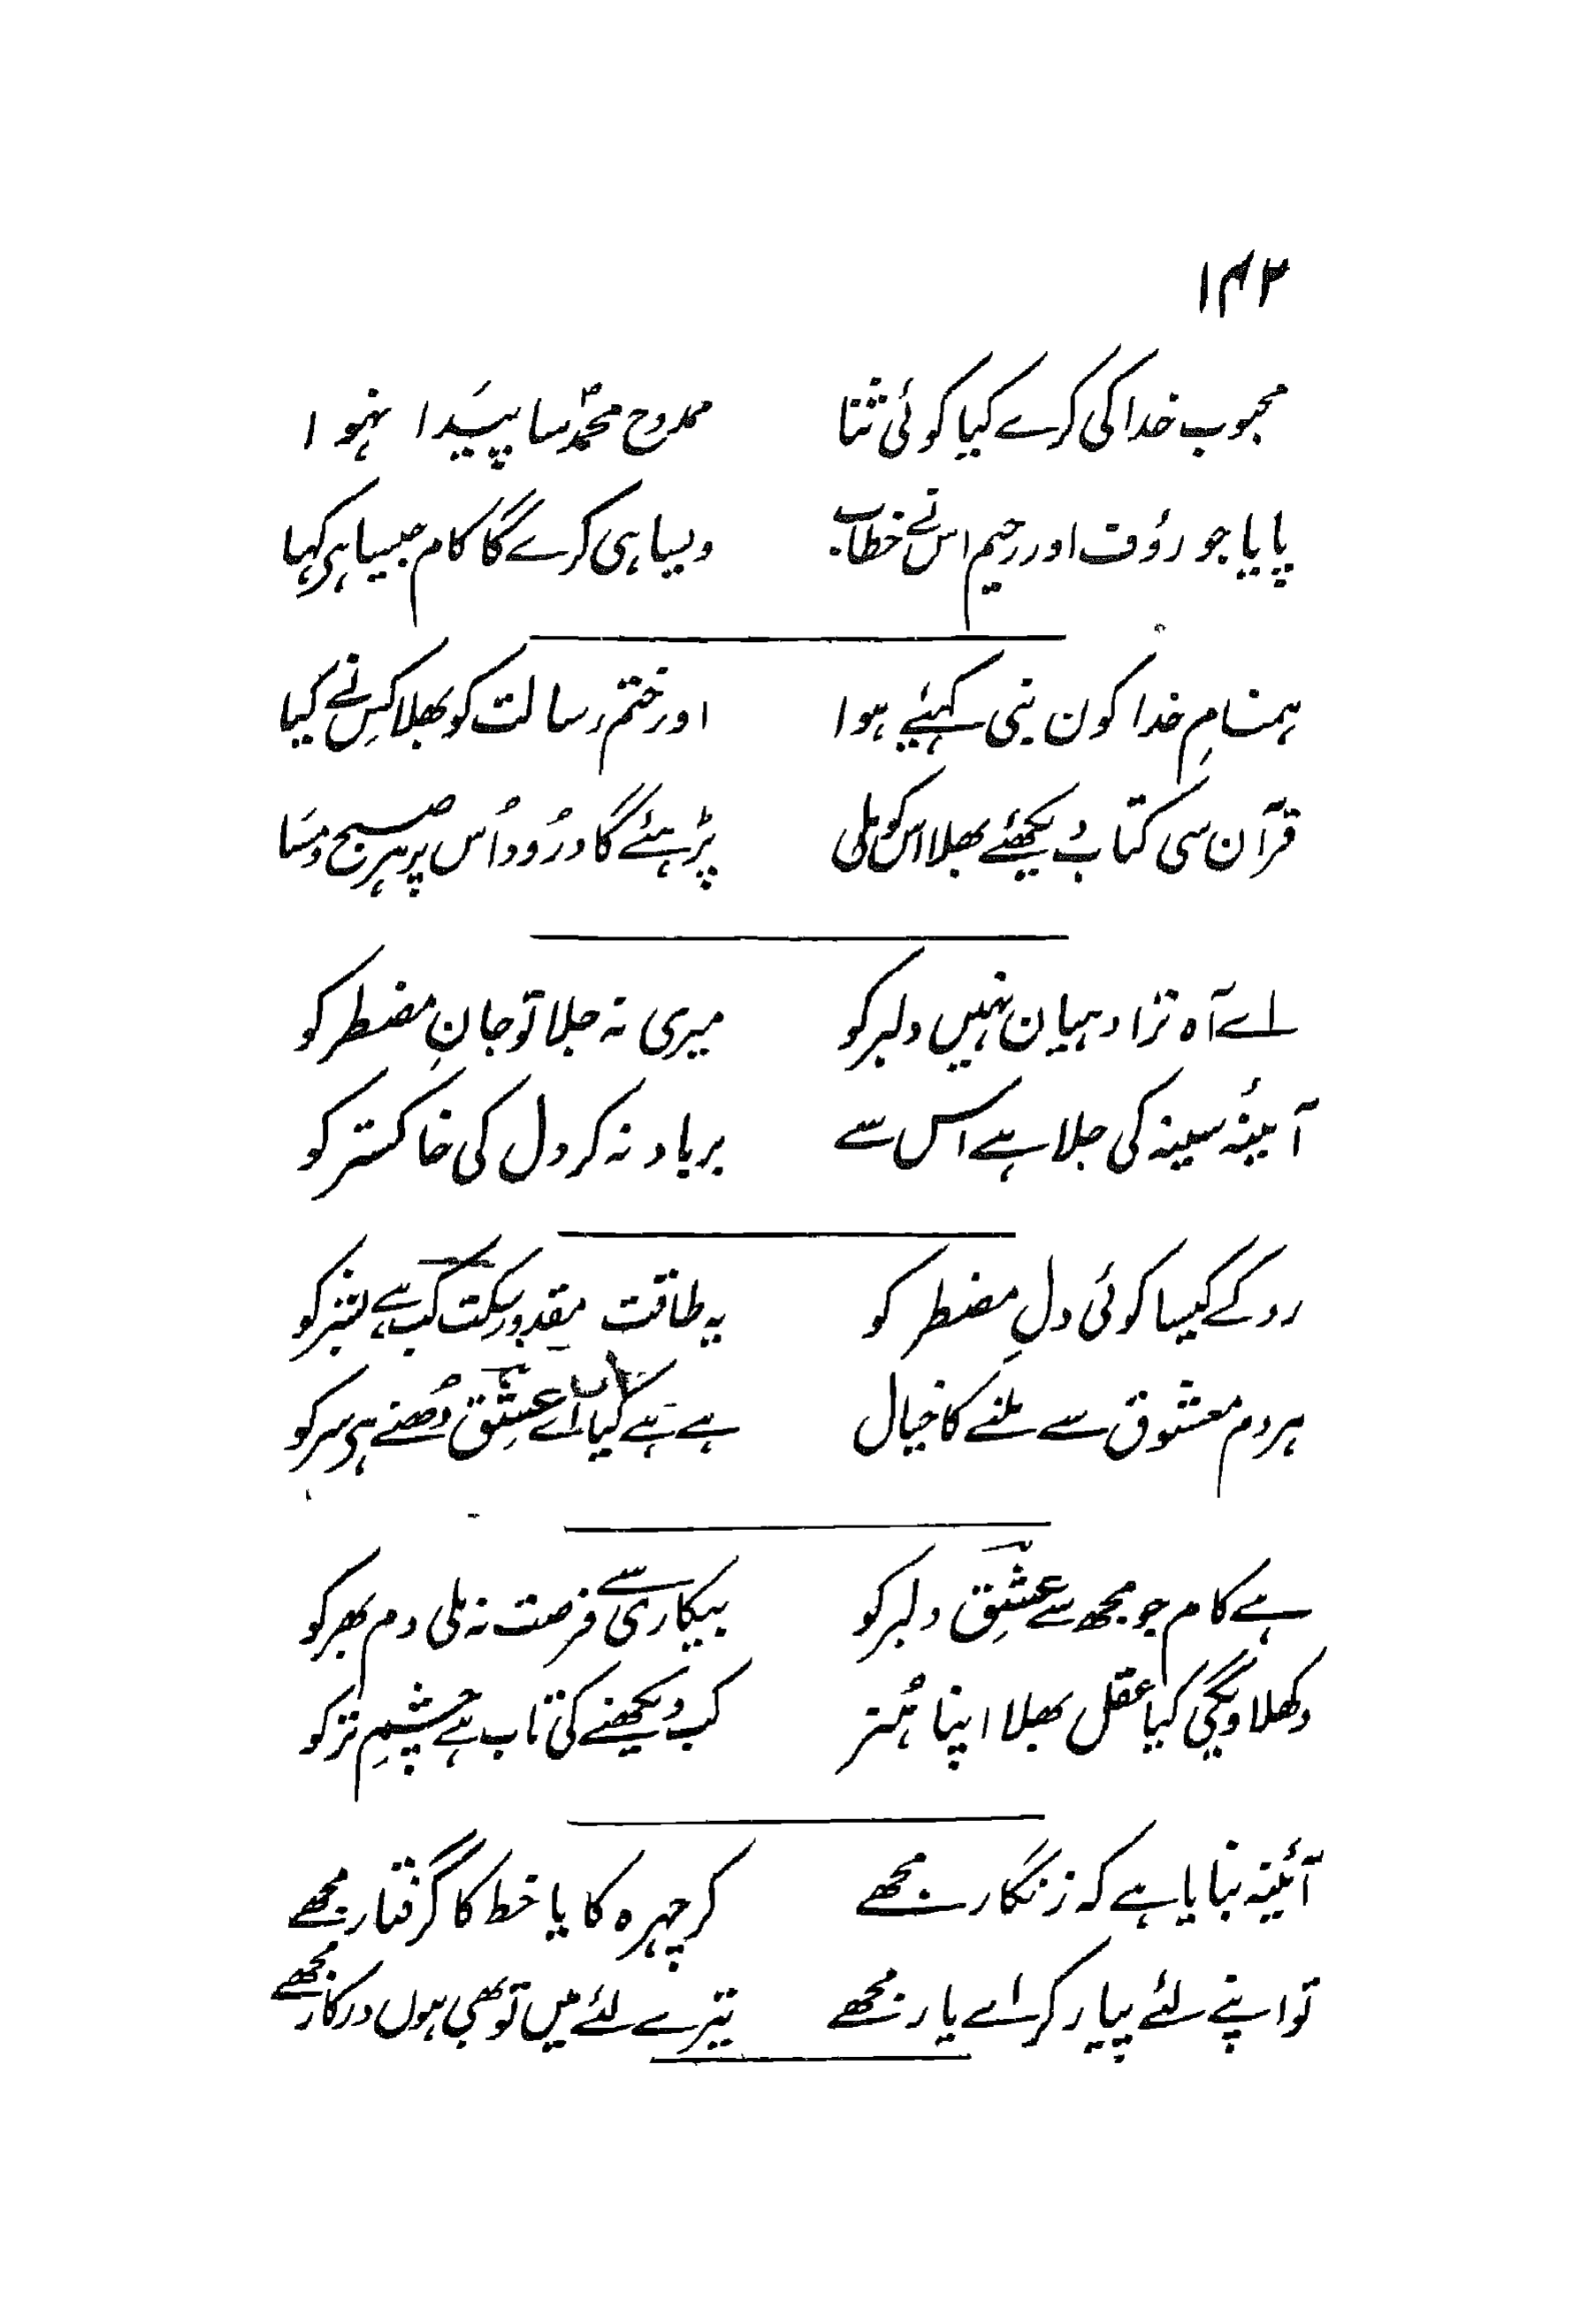 ۱۴۲
محبوب خدا کی کرے کیا کوئی ثنا ممدوح محمدؐ سا پیَدا نہوا
پایا جو رؤف اور رحیم اس نے خطاب ویسا ہی کرے گا کام جیسا ہی کہا
ہمنامِ خدا کون نبی کہیٔے ہوا اور ختم رسالت کو بھلا کِس نے کیا
قرآن سی کتاب دیکھئے بھلا اس کو ملی پڑہئے گا درُود اُس پر ہر صبح و مسَا
اے آہ ترا دہیان نہیں دلبر کو میری نہ جلا تو جانِ مضطر کو
آئینۂ سینہ کی جلا ہے اس سے برباد نہ کر دل کی خاکستر کو
روکے کیسا کوئی دلِ مضطر کو یہ طاقت مقدور سکت کب ہے بشر کو
ہردم معشوق سے ملنے کا خیال ہے ہَے کیا اَے عشِق دُھنے ہی سر کو
ہے کام جو مجھ سے عشِق دلبر کو بیکاری سے فرصت نہ ملی دم بھر کو
دکھلاویگی کیا عقل بھلا اپنا ہُنر کب دیکھنے کی تاب ہے چشمِ تر کو
آئینہ بنایا ہے کہ زنگار مجھے کر چہرہ کا یا خط کا گرفتار مجھے
تو اپنے لئے پیار کر اے یار مجھے تیرے لئے میں تو بھی ہوں درکار مجھے